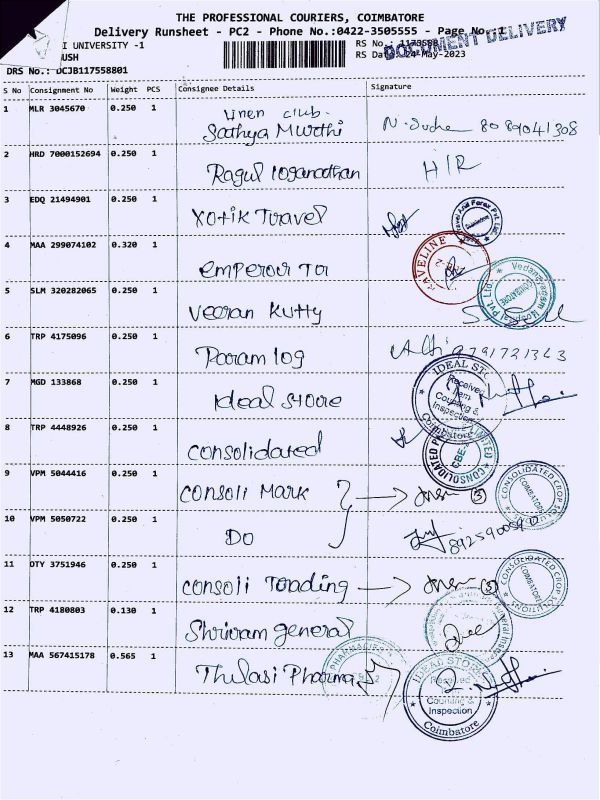 THE PROFESSIONAL COURIERS, COIMBATORE
Delivery Runsheet - PC2 - Phone No.:0422-3505555 - Page No.:1
I UNIVERSITY -1
USH
DRS No.: DCJB117558801
RS No.:
RS Date: 24-May-2023
DOCUMENT DELIVERY
S No Consignment No Weight PCS Consignee Details Signature
1 MLR 3045670 0.250 1 club.
Sathya Murthi
2 HRD 7000152694 0.250 1 Ragul loganathan H/R
3 EDQ 21494901 0.250 1 Xotik Travel
4 MAA 299074102 0.320 1 emperour Tor
5 SLM 320282065 0.250 1 Veeran Kutty
6 TRP 4175096 0.250 1 Param log 9791721363
7 MGD 133868 0.250 1 Ideal store
IDEAL STORE
Received
Item
Counting &
Inspection
Coimbatore
8 TRP 4448926 0.250 1 Consolidated
9 VPM 5044416 0.250 1 Consoli Mark 3
CONSOLIDATED CROP SOLUTIONS
COIMBATORE
10 VPM 5050722 0.250 1 DO
11 OTY 3751946 0.250 1 Consoli Trading 3
CONSOLIDATED CROP SOLUTIONS
COIMBATORE
12 TRP 4180803 0.130 1 Shriram general
13 MAA 567415178 0.565 1 Thulasi Pharma
IDEAL STORE
Received
Counting &
Inspection
Coimbatore